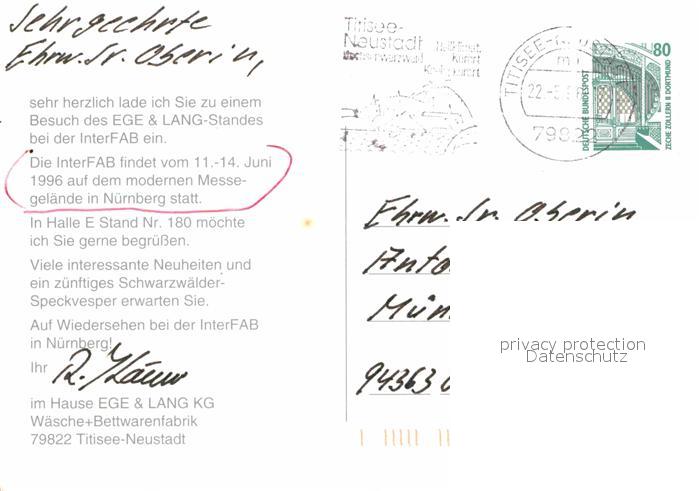 Sehr geehrte
Ehrw. Sr. Oberin,
sehr herzlich lade ich Sie zu einem
Besuch des EGE & LANG-Standes
bei der InterFAB ein.
Die InterFAB findet vom 11.-14. Juni
1996 auf dem modernen Messe-
gelände in Nürnberg statt.
In Halle E Stand Nr. 180 möchte
ich Sie gerne begrüßen.
Viele interessante Neuheiten und
ein zünftiges Schwarzwälder-
Speckvesper erwarten Sie.
Auf Wiedersehen bei der InterFAB
in Nürnberg!
Ihr
im Hause EGE & LANG KG
Wäsche+Bettwarenfabrik
79822 Titisee-Neustadt
Titisee-
Neustadt
Hochschwarzwald
Heilklimat.
Kurort
Kneippkurort
TITISEE-
22.-5.
79822
80
DEUTSCHE BUNDESPOST
ZECHE ZOLLERN II DORTMUND
Ehrw. Sr. Oberin
Anto
Mün
94363
privacy protection
Datenschutz